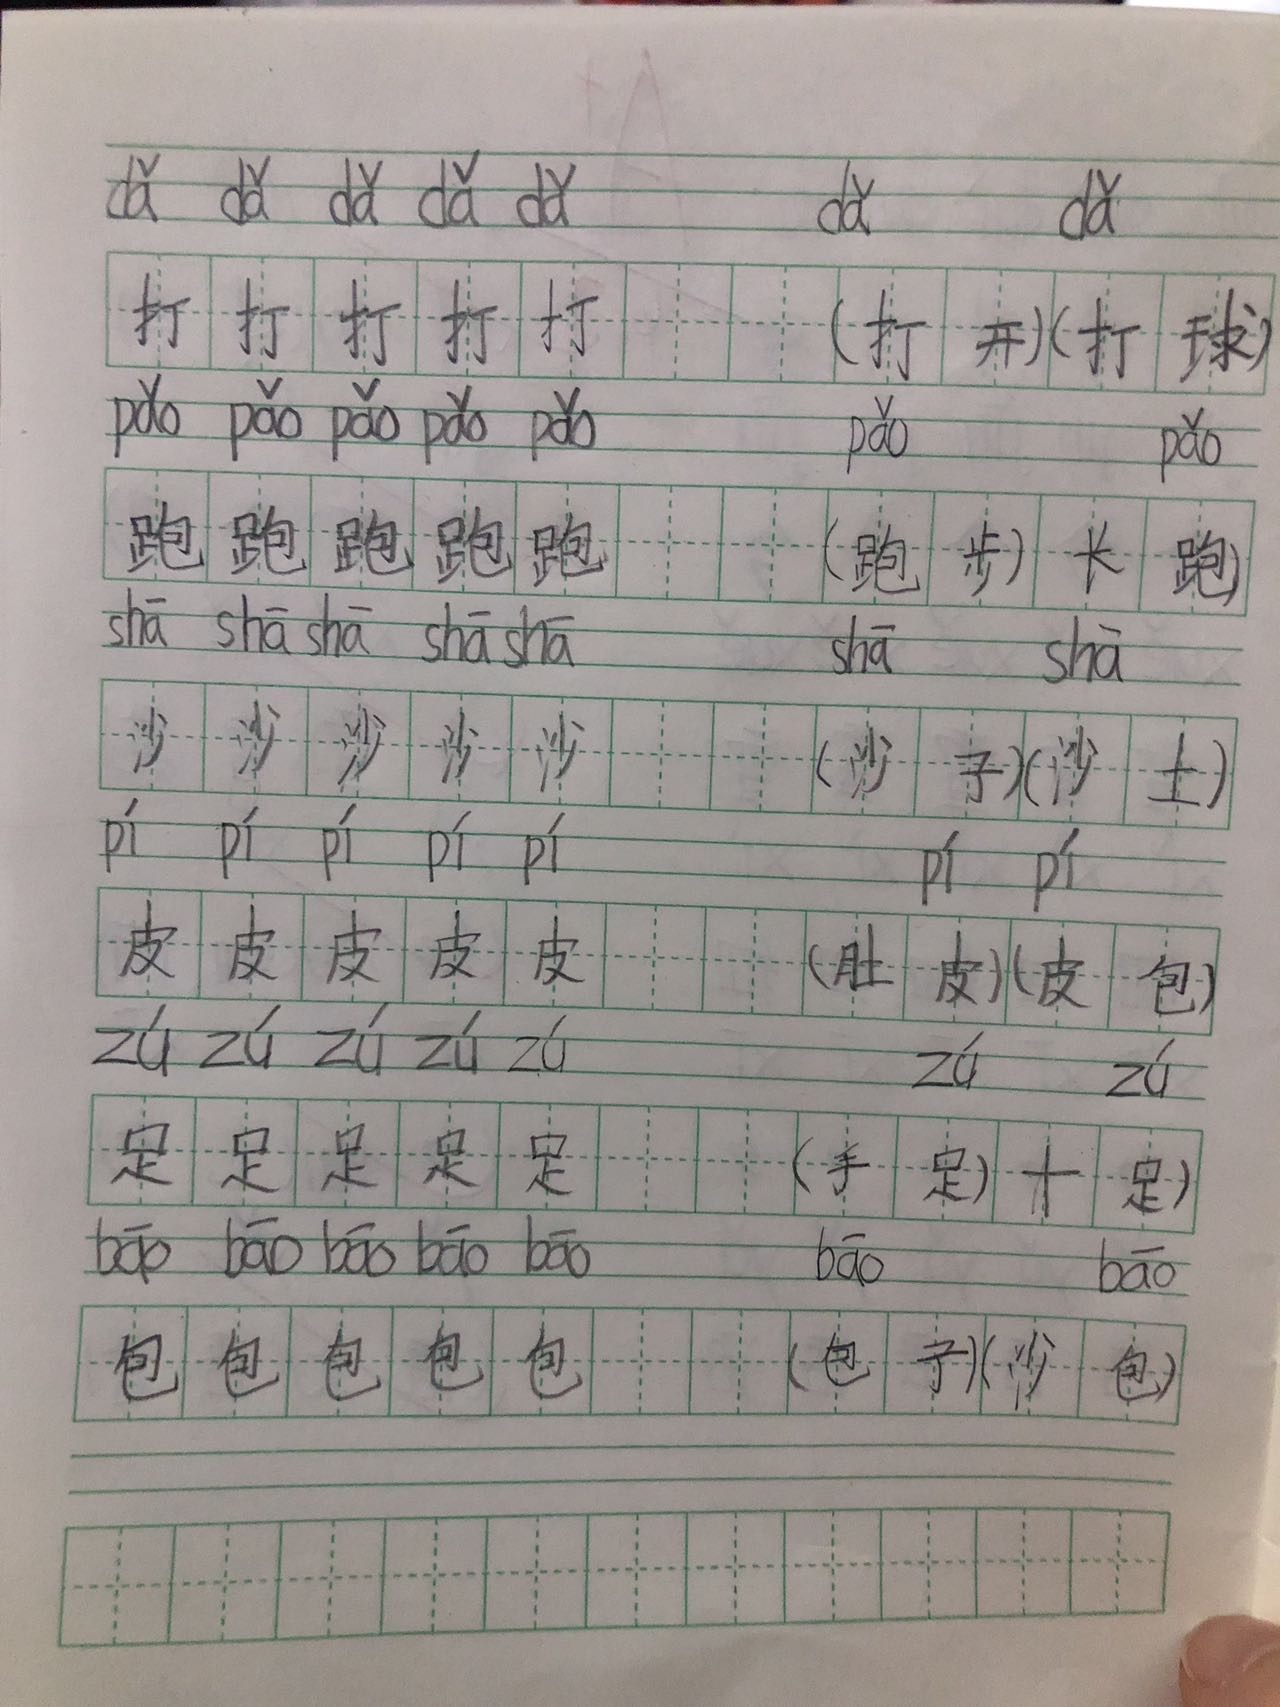 dǎ dǎ dǎ dǎ dǎ dǎ dǎ
打 打 打 打 打 (打 开)(打 球)
pǎo pǎo pǎo pǎo pǎo pǎo pǎo
跑 跑 跑 跑 跑 (跑 步) 长 跑)
shā shā shā shā shā shā shā
沙 沙 沙 沙 沙 (沙 子)(沙 土)
pí pí pí pí pí pí pí
皮 皮 皮 皮 皮 (肚 皮)(皮 包)
zú zú zú zú zú zú zú
足 足 足 足 足 (手 足) 十 足)
bāo bāo bāo bāo bāo bāo bāo
包 包 包 包 包 (包 子)(沙 包)